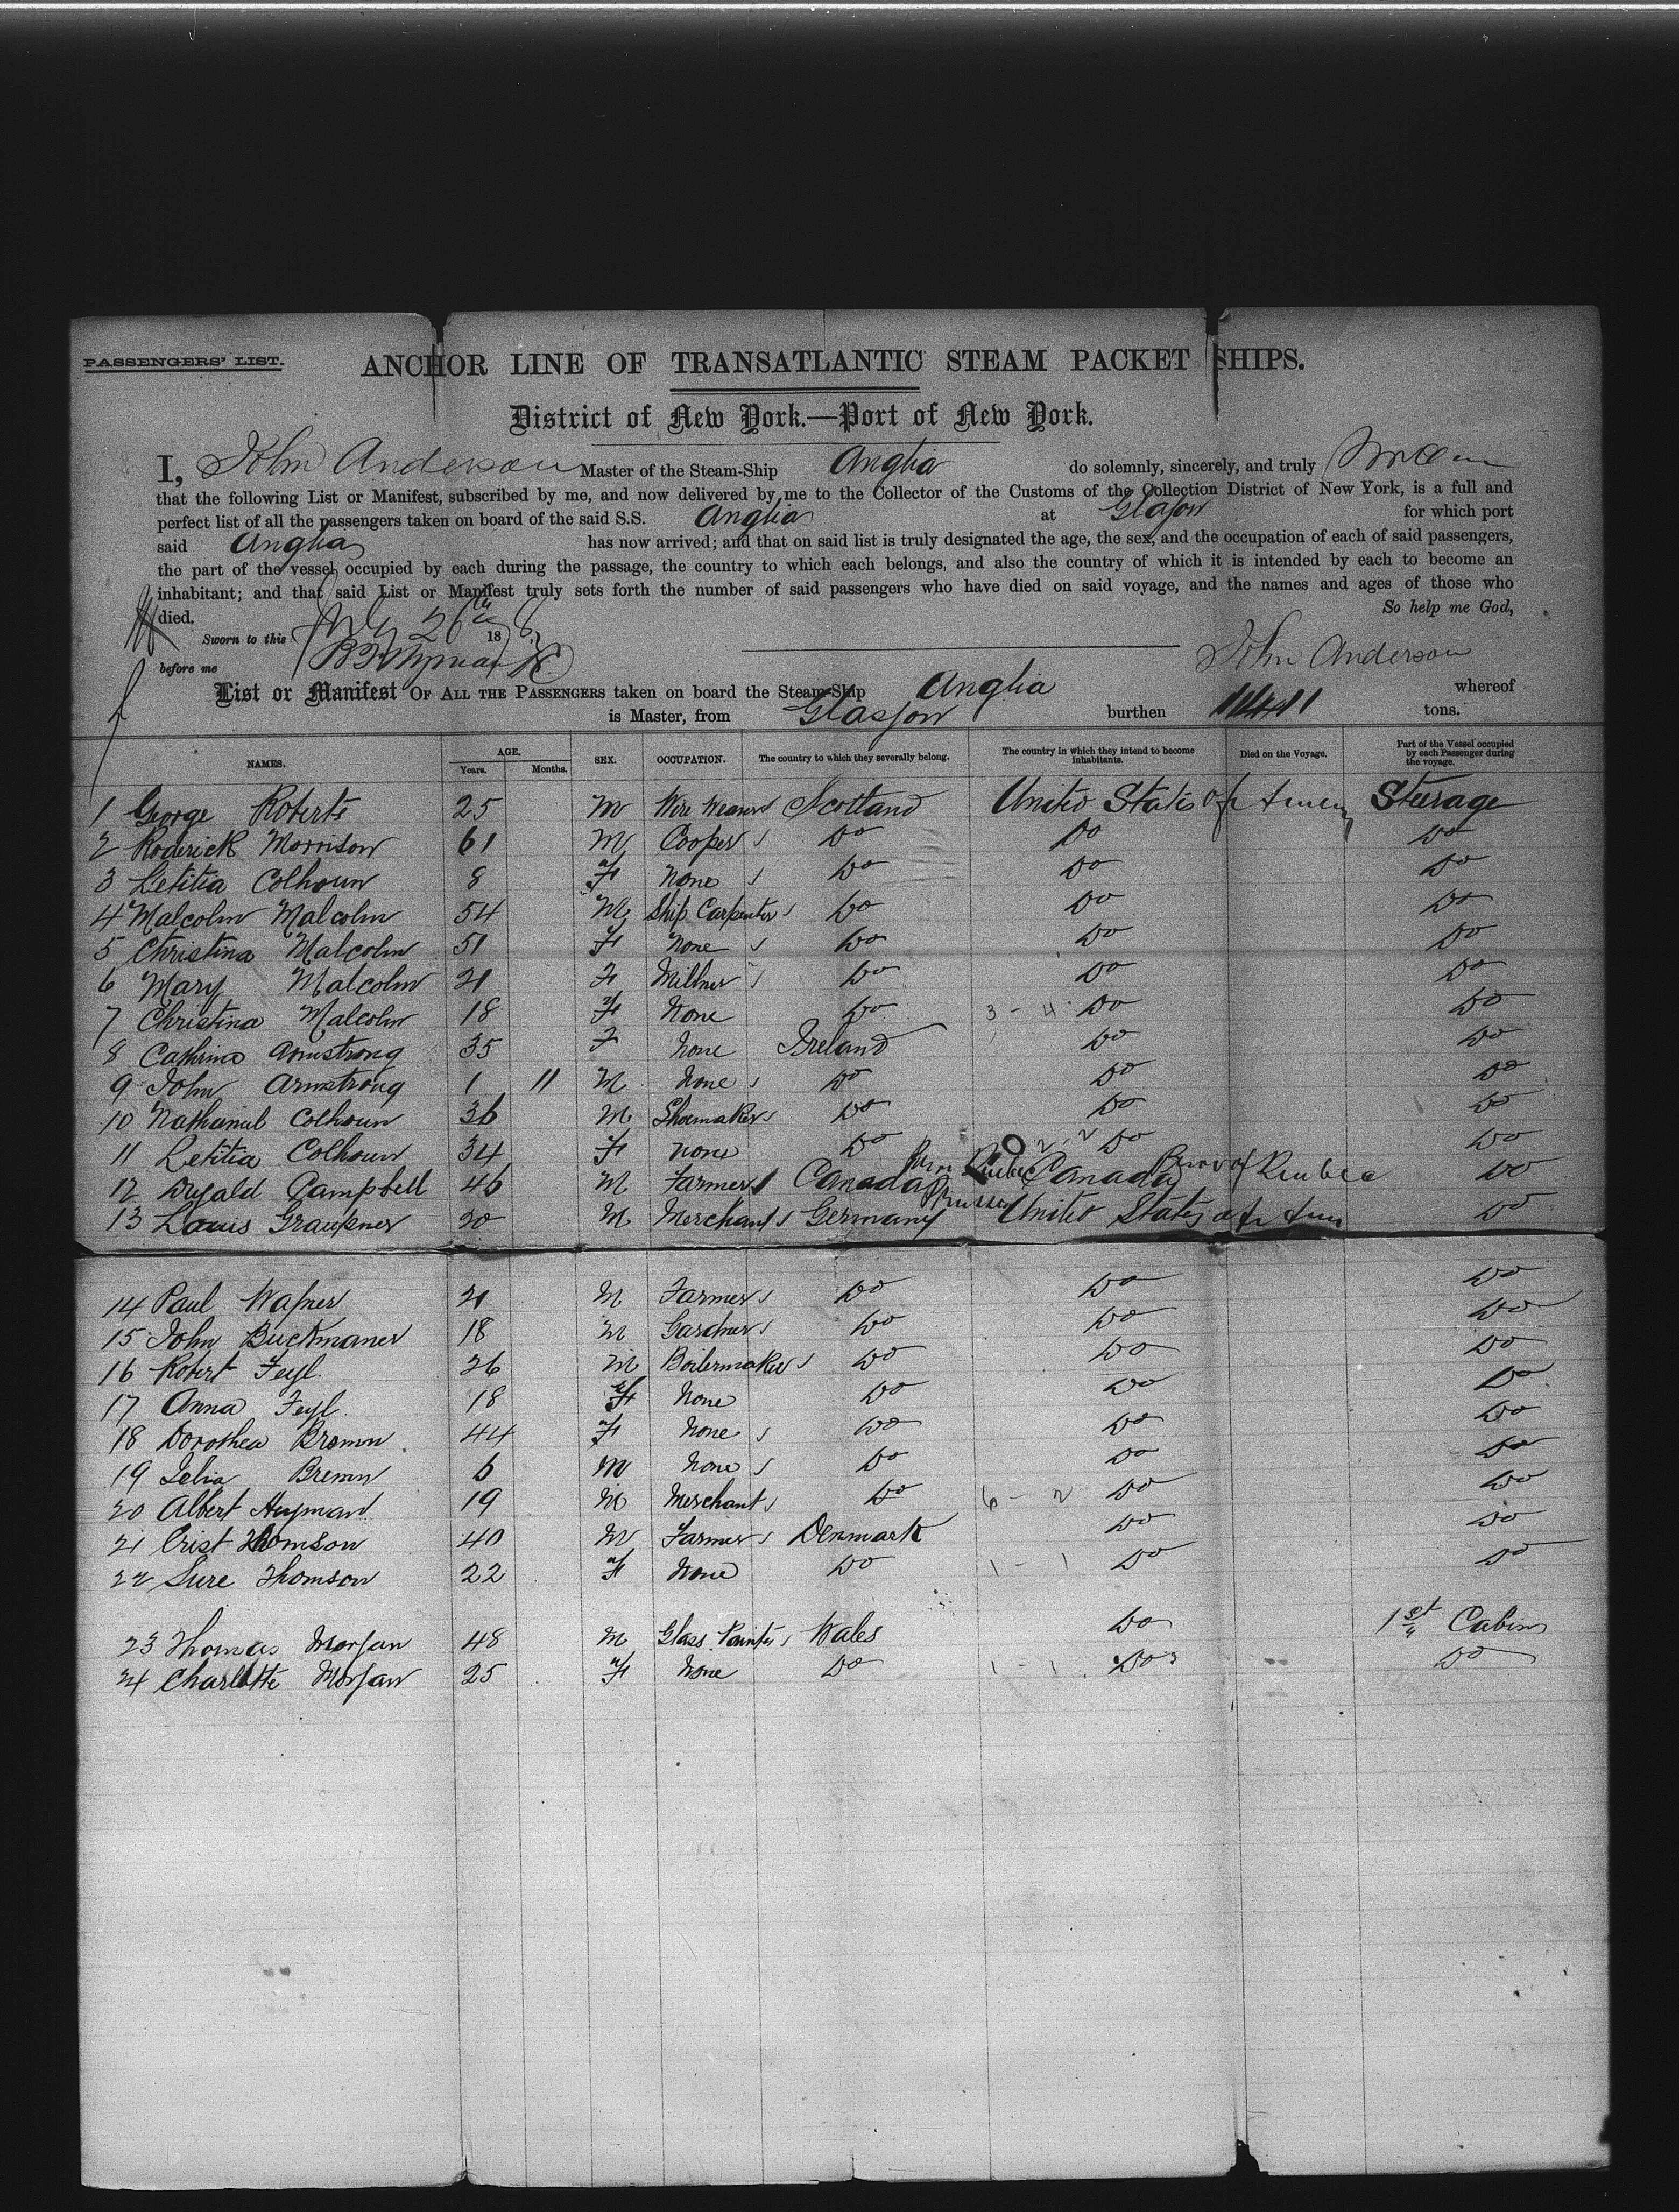 PASSENGERS' LIST.
ANCHOR LINE OF TRANSATLANTIC STEAM PACKET SHIPS.
District of New York.—Port of New York.
I, John Anderson Master of the Steam-Ship Anglia do solemnly, sincerely, and truly
that the following List or Manifest, subscribed by me, and now delivered by me to the Collector of the Customs of the Collection District of New York, is a full and
perfect list of all the passengers taken on board of the said S.S. Anglia at Glasgow for which port
said Anglia has now arrived; and that on said list is truly designated the age, the sex, and the occupation of each of said passengers,
the part of the vessel occupied by each during the passage, the country to which each belongs, and also the country of which it is intended by each to become an
inhabitant; and that said List or Manifest truly sets forth the number of said passengers who have died on said voyage, and the names and ages of those who
died. So help me God,
Sworn to this July 26th 18
before me John Anderson
List or Manifest OF ALL THE PASSENGERS taken on board the Steam-Ship Anglia whereof
is Master, from Glasgow burthen tons.
NAMES. AGE. Years. Months. SEX. OCCUPATION. The country to which they severally belong. The country in which they intend to become inhabitants. Died on the Voyage. Part of the Vessel occupied by each Passenger during the voyage.
1 George Roberts 25 M Wire Weaver Scotland United States of Steerage
2 Roderick Morrison 61 M Cooper Do Do Do
3 Letitia Colhoun 8 F None Do Do Do
4 Malcolm Malcolm 54 M Ship Carpenter Do Do Do
5 Christina Malcolm 51 F None Do Do Do
6 Mary Malcolm 21 F Milner Do Do Do
7 Christina Malcolm 18 F None Do 3 - 4 Do Do
8 Cathrina Armstrong 35 F None Ireland Do Do
9 John Armstrong 1 11 M None Do Do Do
10 Nathaniel Colhoun 36 M Shoemaker Do Do Do
11 Letitia Colhoun 34 F None Do 2-2 Do Do
12 Dugald Campbell 46 M Farmer Canada Canada Prov of Quebec Do
13 Louis Graupner 20 M Merchant Germany Prussia United States of Do
14 Paul Wagner 21 M Farmer Do Do Do
15 John Buckmaner 18 M Gardner Do Do Do
16 Robert Feyl. 26 M Boilermaker Do Do Do
17 Anna Feyl. 18 F None Do Do Do
18 Dorothea Bremn. 44 F None Do Do Do
19 Bremn 6 M None Do Do Do
20 Albert Heyman 19 M Merchant Do 6 - 2 Do Do
21 Crist Thomson 40 M Farmer Denmark Do Do
22 Sure Thomson 22 F None Do 1 - 1 Do Do
23 Thomas Morgan 48 M Glass Painter Wales Do 1st Cabin
24 Charlotte Morgan 25 F None Do 1 - 1 Do Do